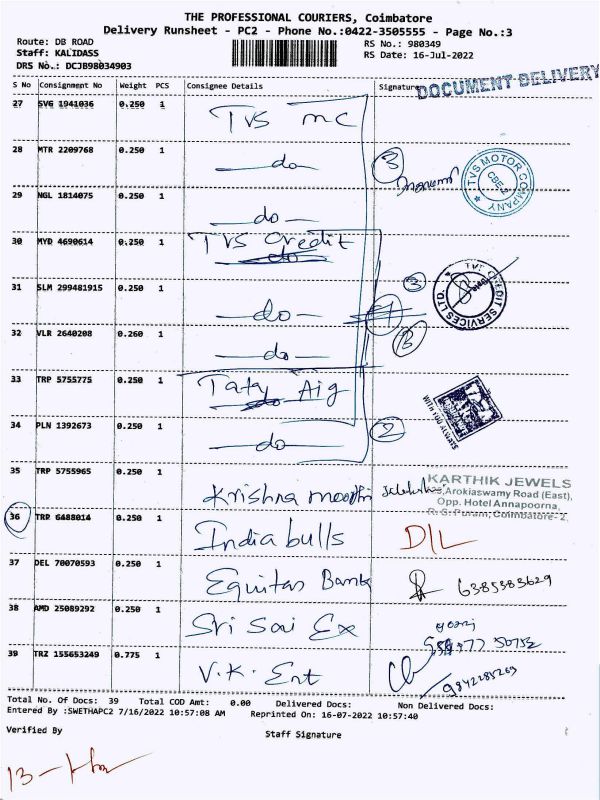 THE PROFESSIONAL COURIERS, Coimbatore
Delivery Runsheet - PC2 - Phone No.:0422-3505555 - Page No.:3
Route: DB ROAD RS No.: 980349
Staff: KALIDASS RS Date: 16-Jul-2022
DRS No.: DCJB98034903
S No Consignment No Weight PCS Consignee Details Signature
DOCUMENT DELIVERY
27 SVG 1941036 0.250 1 TVS mc
28 MTR 2209768 0.250 1 do 3
TVS MOTOR COMPANY
29 NGL 1814075 0.250 1 do
30 MYD 4690614 0.250 1 TVS Credit
do
TVS CREDIT SERVICES LTD.
31 SLM 299481915 0.250 1 do 3
32 VLR 2640208 0.260 1 do
33 TRP 5755775 0.250 1 Tata Aig
do
WITH YOU ALWAYS
34 PLN 1392673 0.250 1 do 2
35 TRP 5755965 0.250 1 Krishna moorthi
KARTHIK JEWELS
Arokiaswamy Road (East),
Opp. Hotel Annapoorna,
R. S. Puram, Coimbatore-2.
36 TRP 6488014 0.250 1 India bulls D/L
37 DEL 70070593 0.250 1 Equitas Bank 6385383629
38 AMD 25089292 0.250 1 Sri Sai Ex
39 TRZ 155653249 0.775 1 V.K. Ent 9842285269
Total No. Of Docs: 39 Total COD Amt: 0.00 Delivered Docs: Non Delivered Docs:
Entered By :SWETHAPC2 7/16/2022 10:57:08 AM Reprinted On: 16-07-2022 10:57:40
Verified By Staff Signature